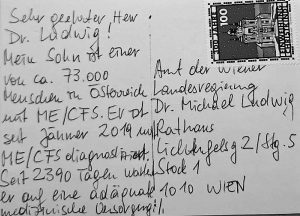 Sehr geehrter Herr
Dr. Ludwig!
Mein Sohn ist einer
von ca. 73.000
Menschen in Österreich
mit ME/CFS. Er ist
seit Jänner 2019 mit
ME/CFS diagnostiziert.
Seit 2390 Tagen warten
er auf eine adäquate
medizinische Versorgung!
100
Amt der Wiener
Landesregierung
Dr. Michael Ludwig
Rathaus
Lichtenfelsg 2/Stg. 5
Stock 1
1010 WIEN